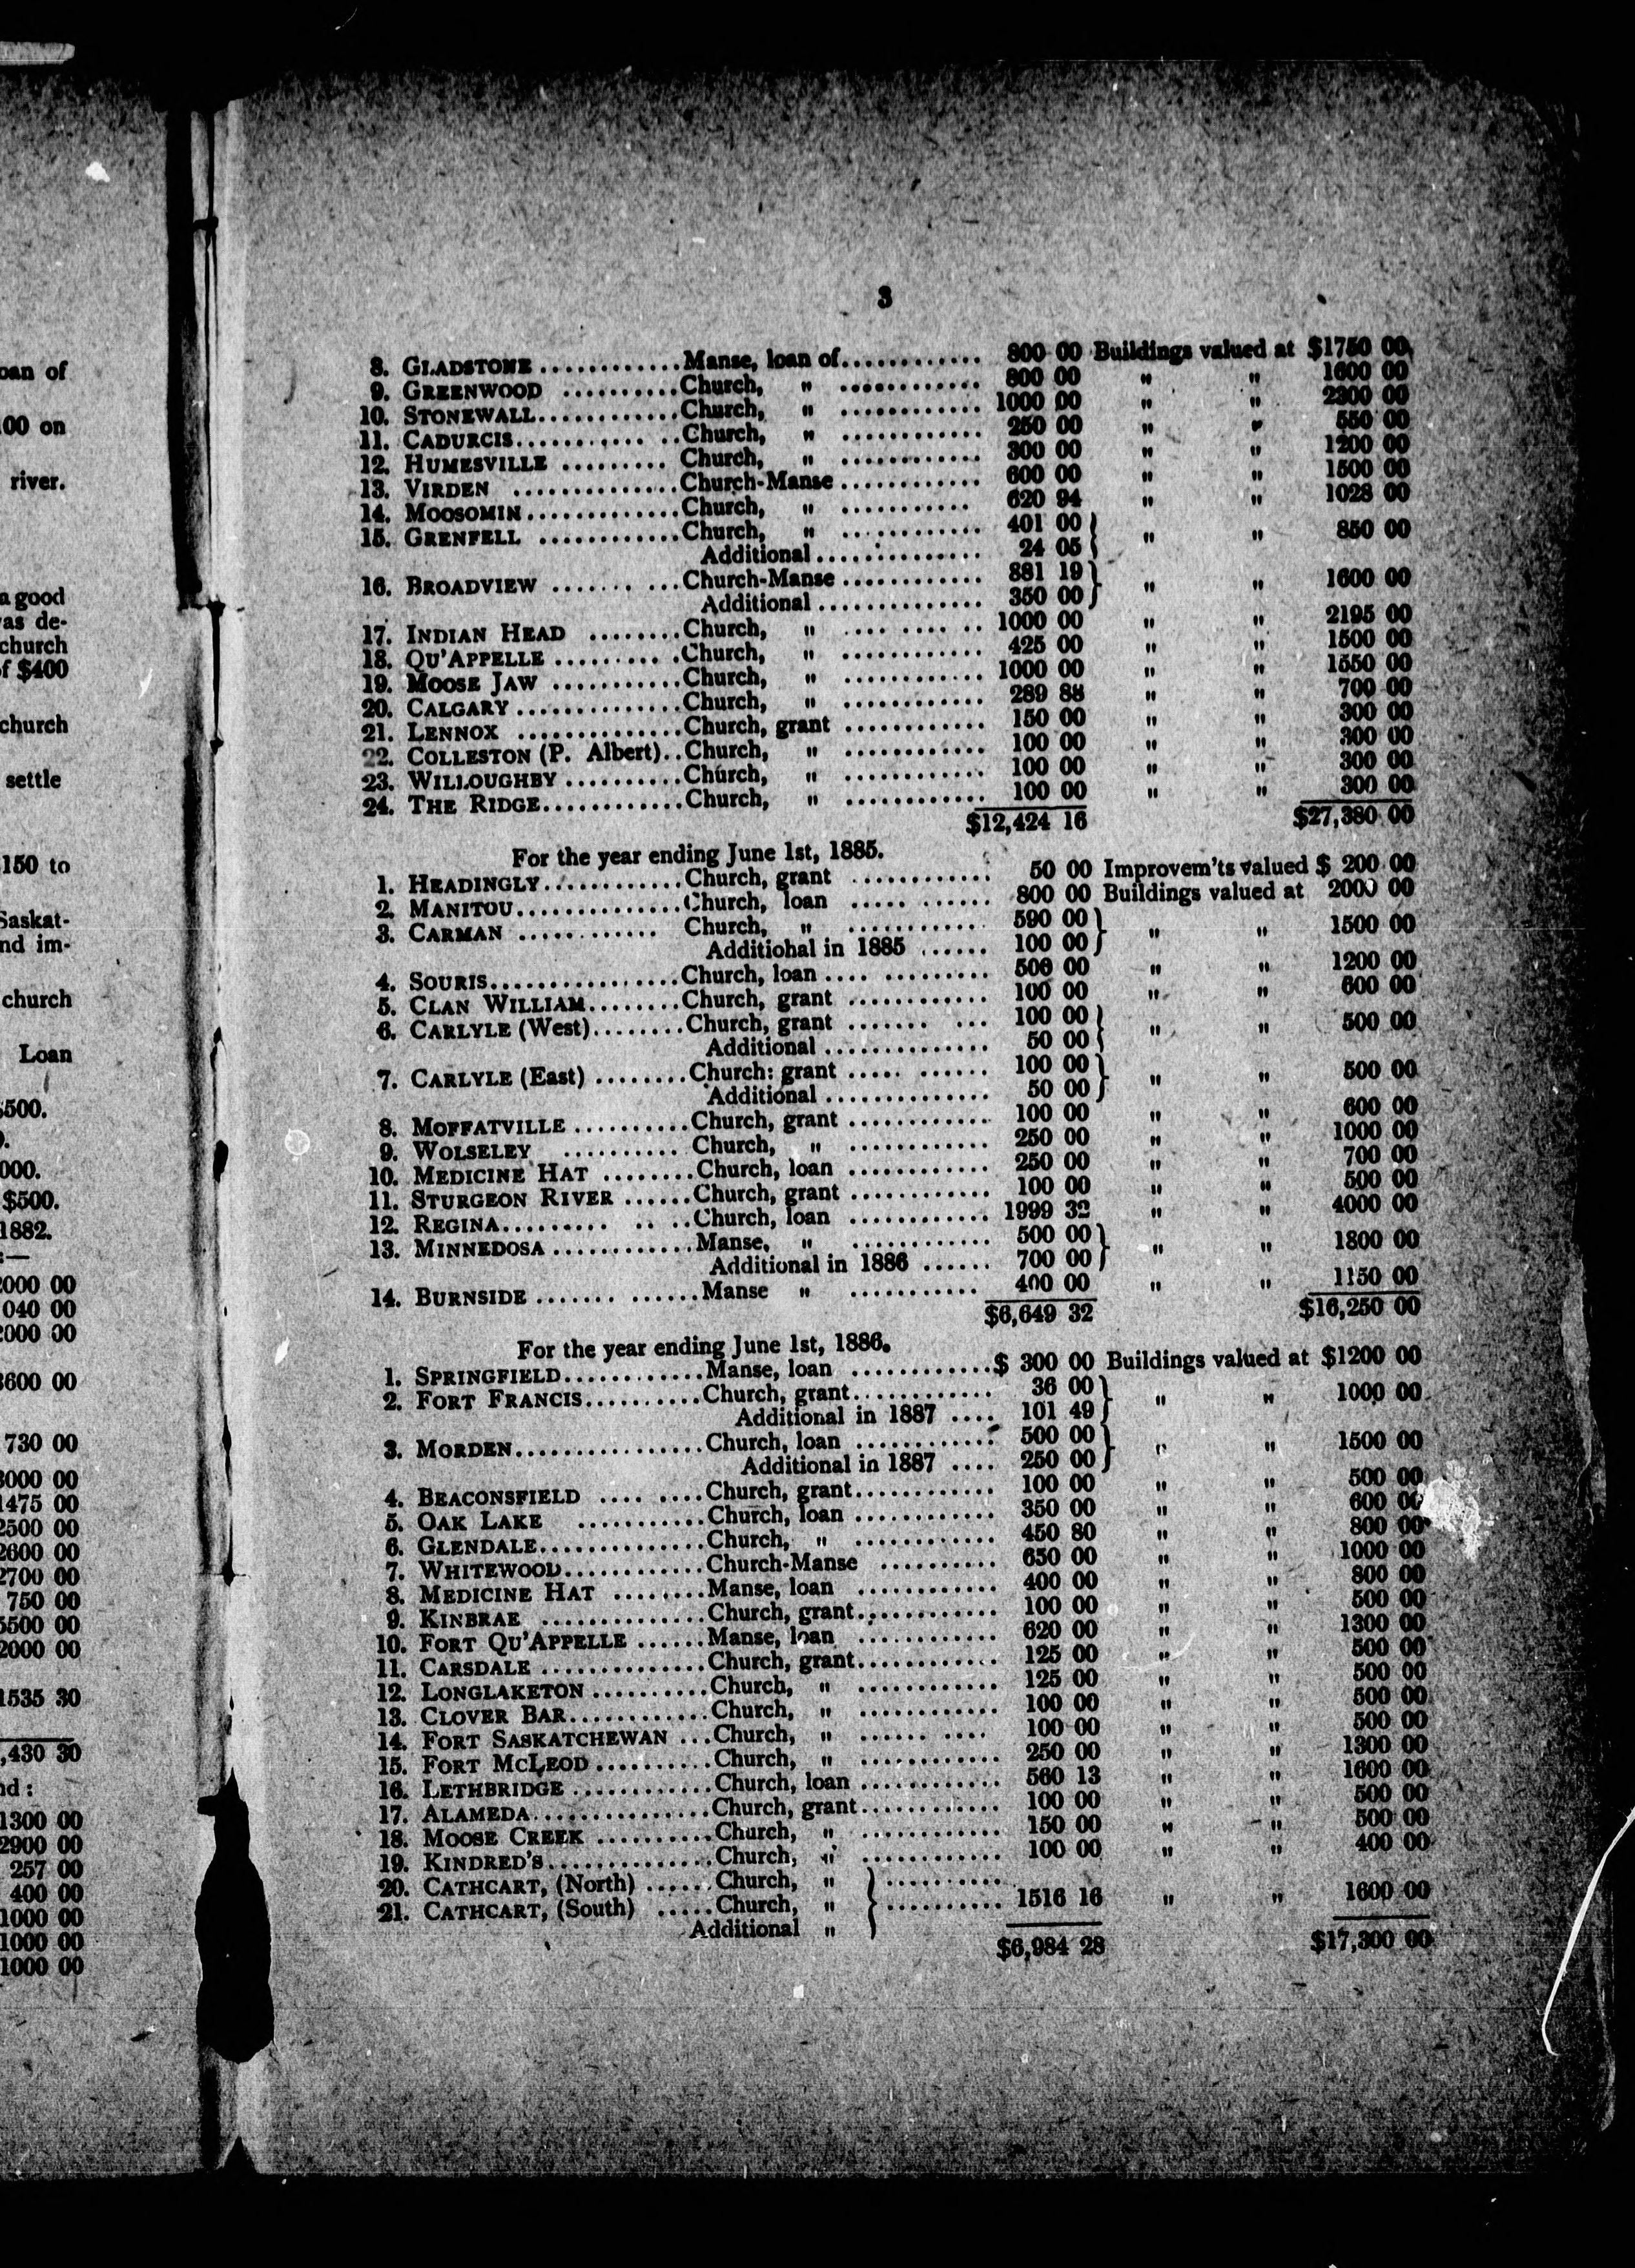 oan of
00 on
river.
a good
as de-
church
f $400
church
settle
150 to
Saskat-
nd im-
church
Loan
$500.
000.
$500.
1882.
:—
000 00
040 00
000 00
600 00
730 00
000 00
475 00
2500 00
2600 00
2700 00
750 00
5500 00
2000 00
1535 30
,430 30
nd :
1300 00
2900 00
257 00
400 00
1000 00
1000 00
1000 00
3
8. GLADSTONE ............ Manse, loan of............ 800 00 Buildings valued at $1750 00
9. GREENWOOD .......... Church, " ............ 800 00 " " 1600 00
10. STONEWALL............ Church, " ............ 1000 00 " " 2300 00
11. CADURCIS............. Church, " ............ 250 00 " " 550 00
12. HUMESVILLE ......... Church, " ............ 300 00 " " 1200 00
13. VIRDEN .............. Church-Manse ............ 600 00 " " 1500 00
14. MOOSOMIN............. Church, " ........... 620 94 " " 1028 00
15. GRENFELL ............ Church, " ............ 401 00 } " " 850 00
Additional .............. 24 05 }
16. BROADVIEW .......... Church-Manse ............ 881 19 } " " 1600 00
Additional .............. 350 00 }
17. INDIAN HEAD ........ Church, " .... .... .. 1000 00 " " 2195 00
18. QU'APPELLE .......... Church, " ............ 425 00 " " 1500 00
19. MOOSE JAW ........... Church, " ............ 1000 00 " " 1550 00
20. CALGARY .............. Church, " ............ 289 88 " " 700 00
21. LENNOX .............. Church, grant ............ 150 00 " " 300 00
22. COLLESTON (P. Albert).. Church, " ............ 100 00 " " 300 00
23. WILLOUGHBY .......... Church, " ............ 100 00 " " 300 00
24. THE RIDGE............ Church, " ............ 100 00 " " 300 00
$12,424 16 $27,380 00
For the year ending June 1st, 1885.
1. HEADINGLY............ Church, grant ............ 50 00 Improvem'ts valued $ 200 00
2. MANITOU.............. Church, loan ..... ...... 800 00 Buildings valued at 2000 00
3. CARMAN ............ Church, " ............ 590 00 } " " 1500 00
Additiohal in 1885 ...... 100 00 }
4. SOURIS................ Church, loan .... ......... 500 00 " " 1200 00
5. CLAN WILLIAM........ Church, grant ............ 100 00 " " 600 00
6. CARLYLE (West)........ Church, grant ....... ... 100 00 } " " 500 00
Additional .............. 50 00 }
7. CARLYLE (East) ........ Church: grant ..... ...... 100 00 } " " 500 00
Additional .............. 50 00 }
8. MOFFATVILLE .......... Church, grant ............ 100 00 " " 600 00
9. WOLSELEY .......... Church, " ............ 250 00 " " 1000 00
10. MEDICINE HAT ........ Church, loan ............ 250 00 " " 700 00
11. STURGEON RIVER ...... Church, grant ............ 100 00 " " 500 00
12. REGINA......... .. .. Church, loan ............ 1999 32 " " 4000 00
13. MINNEDOSA ............ Manse, " ............ 500 00 } " " 1800 00
Additional in 1886 ...... 700 00 }
14. BURNSIDE ....... ...... Manse " ........... 400 00 " " 1150 00
$6,649 32 $16,250 00
For the year ending June 1st, 1886.
1. SPRINGFIELD............ Manse, loan ............ $ 300 00 Buildings valued at $1200 00
2. FORT FRANCIS.......... Church, grant............ 36 00 } " " 1000 00
Additional in 1887 .... 101 49 }
3. MORDEN................ Church, loan ............ 500 00 } " " 1500 00
Additional in 1887 .... 250 00 }
4. BEACONSFIELD .... .... Church, grant............ 100 00 " " 500 00
5. OAK LAKE ........... Church, loan ............ 350 00 " " 600 00
6. GLENDALE.............. Church, " ............ 450 80 " " 800 00
7. WHITEWOOD............ Church-Manse .......... 650 00 " " 1000 00
8. MEDICINE HAT ........ Manse, loan ............ 400 00 " " 800 00
9. KINBRAE .............. Church, grant............ 100 00 " " 500 00
10. FORT QU'APPELLE ...... Manse, loan ............ 620 00 " " 1300 00
11. CARSDALE .............. Church, grant............ 125 00 " " 500 00
12. LONGLAKETON .......... Church, " ............ 125 00 " " 500 00
13. CLOVER BAR............ Church, " ............ 100 00 " " 500 00
14. FORT SASKATCHEWAN ... Church, " ...... .... 100 00 " " 500 00
15. FORT MCLEOD .......... Church, " ............ 250 00 " " 1300 00
16. LETHBRIDGE ............ Church, loan ............ 560 13 " " 1600 00
17. ALAMEDA............... Church, grant............ 100 00 " " 500 00
18. MOOSE CREEK .......... Church, " ............ 150 00 " " 500 00
19. KINDRED'S.............. Church, " ............ 100 00 " " 400 00
20. CATHCART, (North) ...... Church, " } ..........
21. CATHCART, (South) ..... Church, " } .......... 1516 16 " " 1600 00
Additional " }
$6,984 28 $17,300 00